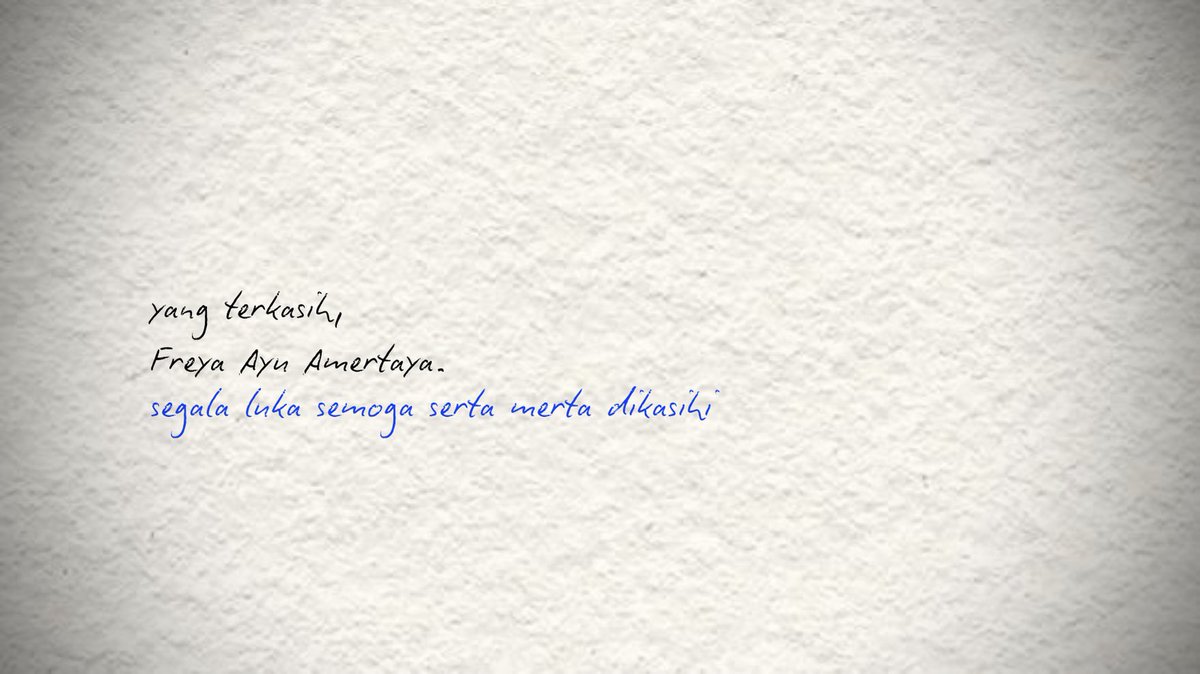 yang terkasih,
Freya Ayu Amertaya.
segala luka semoga serta merta dikasihi